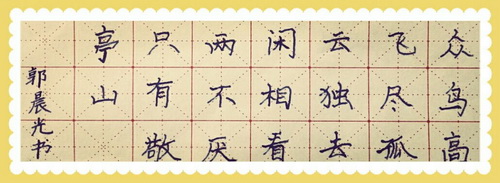 众鸟高
飞尽孤
云独去
闲相看
两不厌
只有敬
亭山
郭晨光书